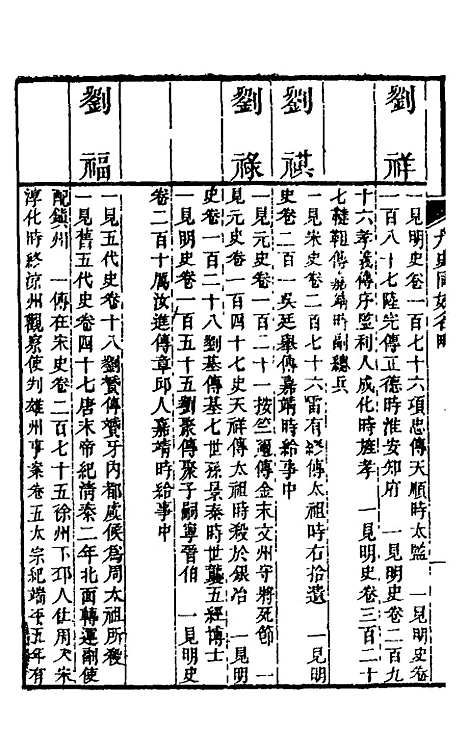 史同姓名略
劉祥
一見明史卷一百七十六項忠傳天順時太監 一見明史卷
一百八十七陸完傳正德時淮安知府 一見明史卷二百九
十六孝義傳序監利人成化時旌孝 一見明史卷三百二十
七韃靼傳嘉靖時副總兵
劉祺
一見宋史卷二百七十六雷有終傳太祖時右拾遺 一見明
史卷二百一吳廷舉傳嘉靖時給事中
劉祿
一見元史卷一百二十一按竺邇傳金末文州守將死節 一
見元史卷一百四十七史天祥傳太祖時殺於銀冶 一見明
史卷一百二十八劉基傳基七世孫景泰時世襲五經博士
一見明史卷一百五十五劉聚傳聚子嗣寧晉伯 一見明史
卷二百十厲汝進傳章邱人嘉靖時給事中
劉福
一見五代史卷十八劉贇傳贇牙內都虞候為周太祖所殺
一見舊五代史卷四十七唐末帝紀清泰二年北面轉運副使
配鎮州 一傳在宋史卷二百七十五徐州下邳人仕周入宋
淳化時終涼州觀察使判雄州事案卷五太宗紀端平五年有